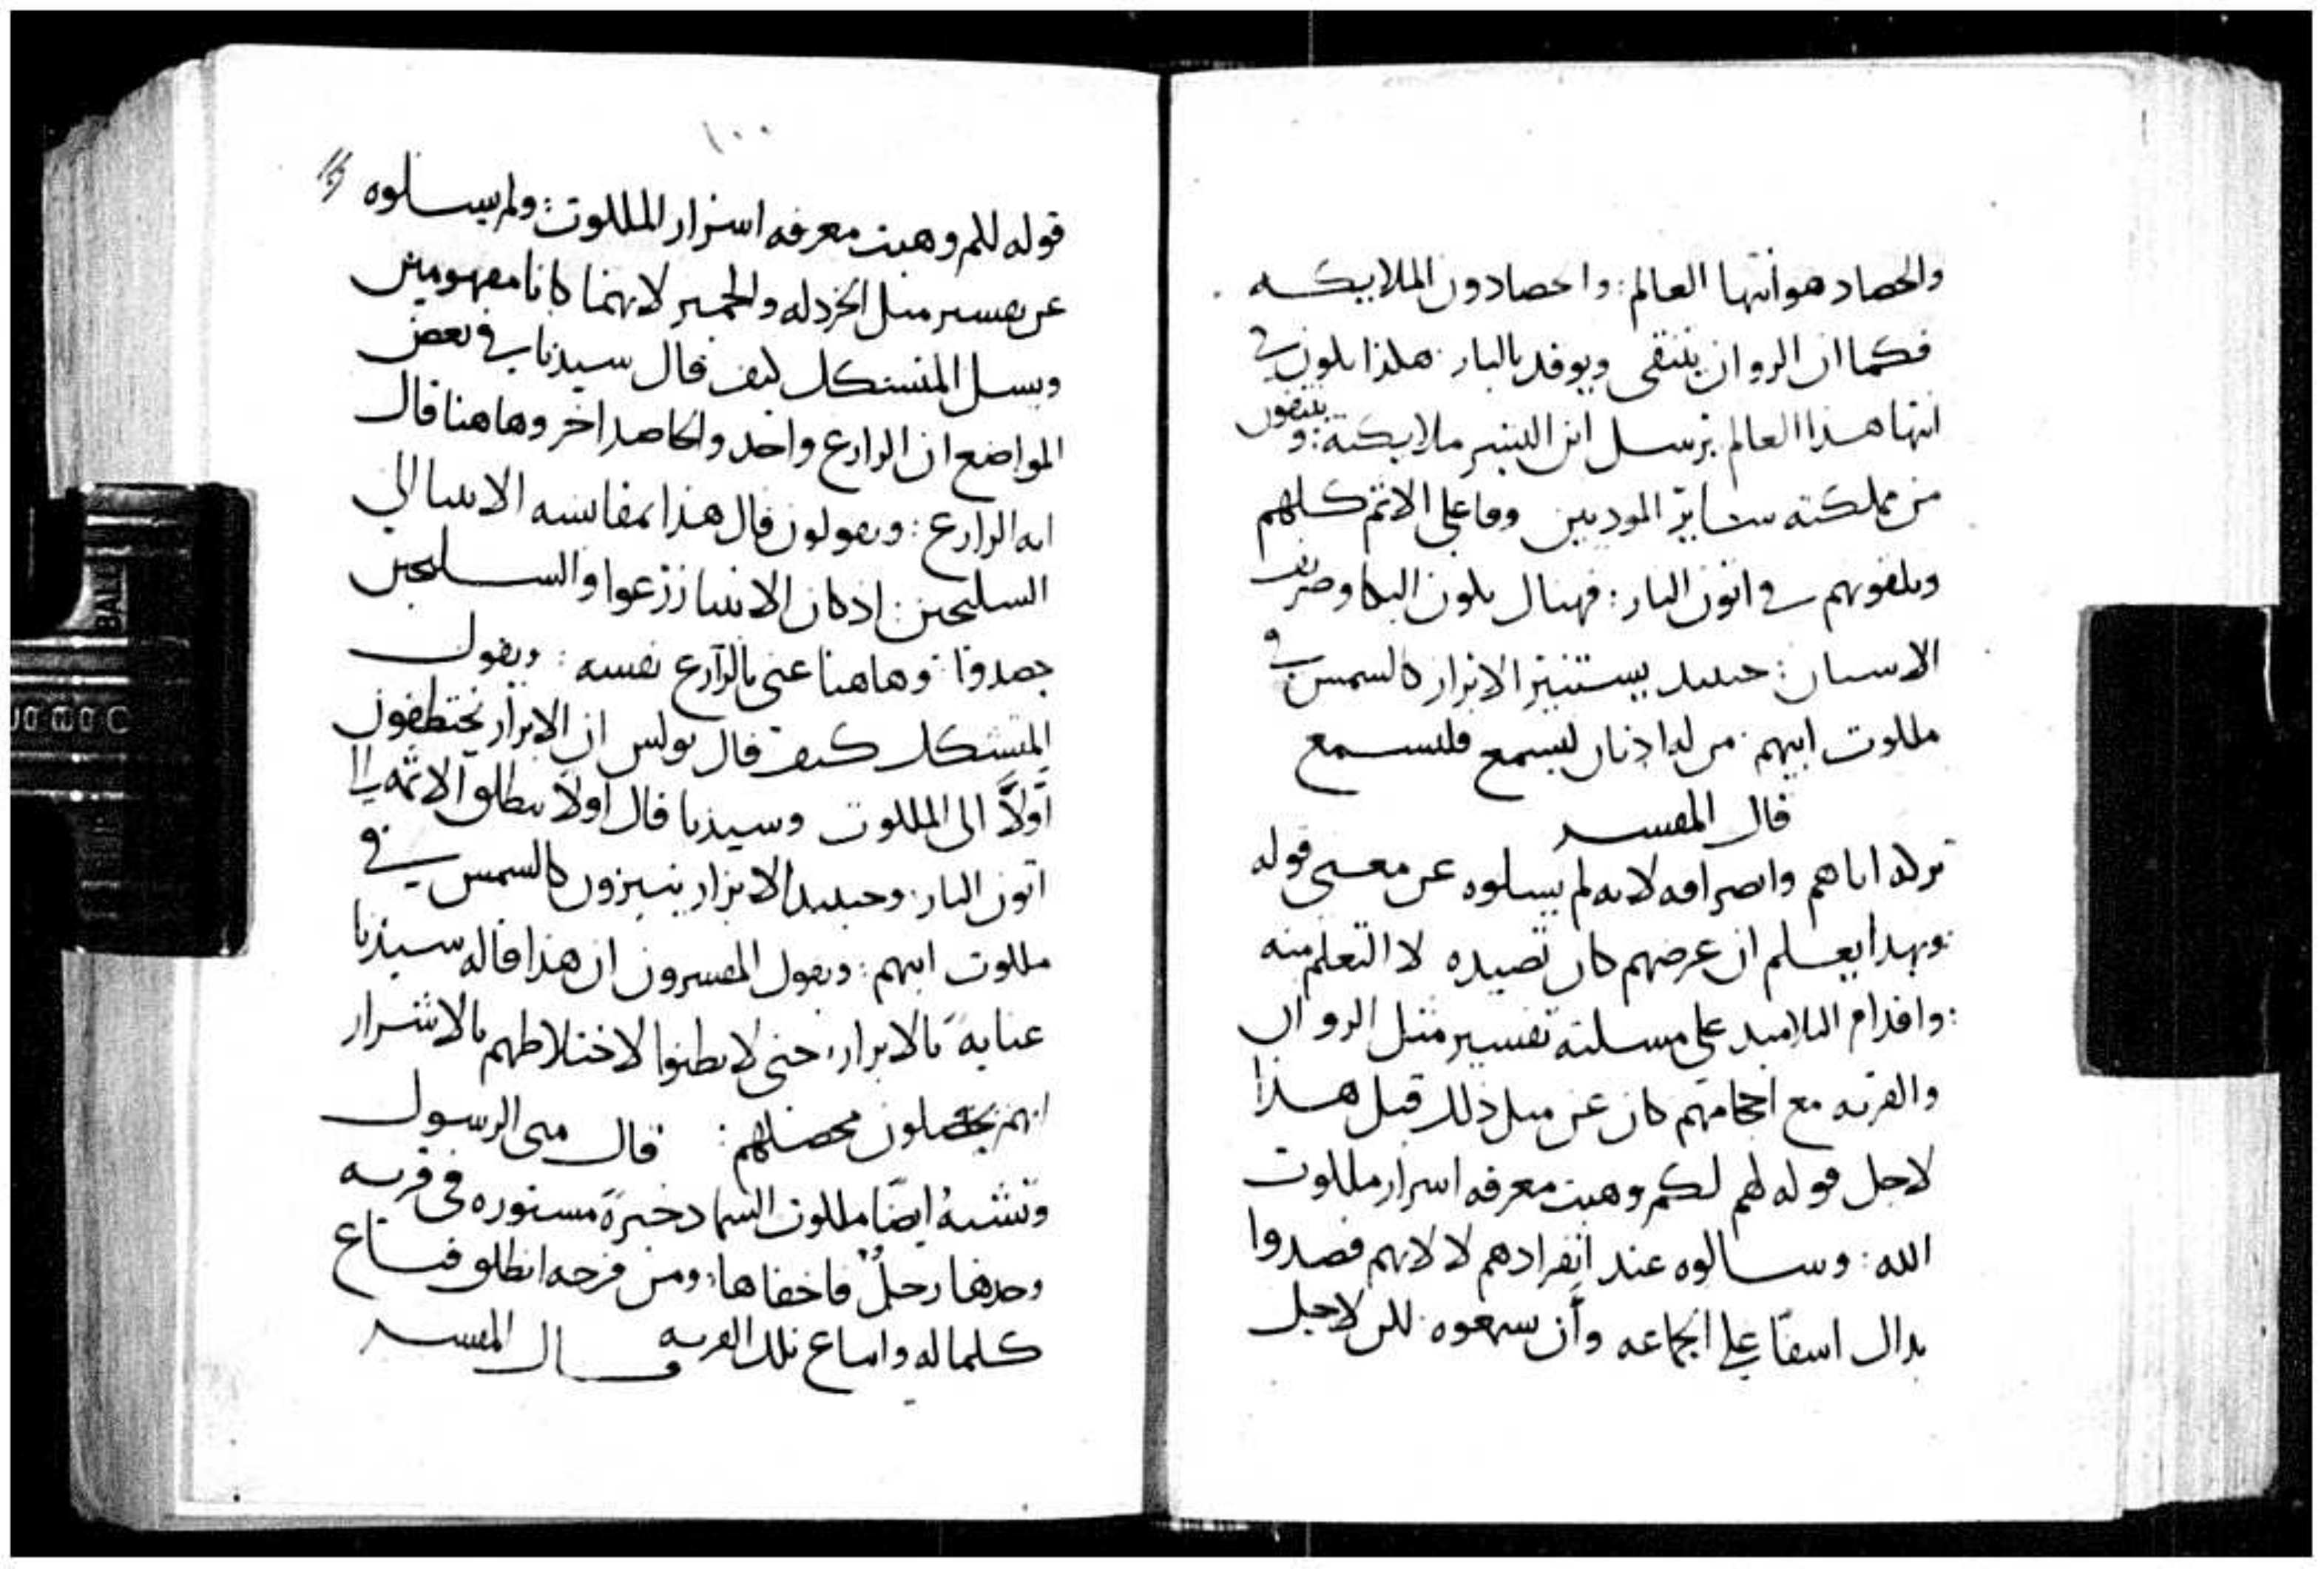 والحصاد هو انتها العالم: والحصادون الملايكه
فكما ان الزوان ينتقى ويوقد بالنار هكذا يكون في
انتها هذا العالم يرسل ابن البشر ملايكته: وينتقون
من مملكته ساير الموديين وفاعلي الاثم كلهم
ويلقونهم في اتون النار: فهناك يكون البكا وصريف
الاسنان: حينيذ يستنير الابرار كالشمس في
ملكوت ابيهم من له اذنان ليسمع فليسمع
قال المفسر
تركه اياهم وانصرافه لانه لم يسلوه عن معنى قوله
وبهذا يعلم ان غرضهم كان تصيده لا التعلم منه
: واقدام التلاميذ على مسلته تفسير مثل الزوان
والقريه مع احجامهم كان عن مثل ذلك قبل هذا
لاجل قوله لهم لكم وهبت معرفه اسرار ملكوت
الله: وسالوه عند انفرادهم لا لانهم قصدوا
بذاك اسفا على الجماعه وأن سمعوه للن لاجل
١٠٠
قوله لكم وهبت معرفه اسرار الملكوت: ولم يسلوه
عن تفسير مثل الخردله والخمير لانهما كانا مفهومين
ويسل المتشكك كيف قال سيدنا في بعض
المواضع ان الزارع واحد والحاصد اخر وهاهنا قال
انه الزارع: ويقولون قال هذا بمقايسه الانبيا الى
السليحين: اذ كان الانبيا زرعوا والسليحين
حصدوا وهاهنا عنى بالزارع نفسه: ويقول
المتشكك كيف قال بولس ان الابرار يختطفون
أولاً الى الملكوت وسيدنا قال اولا ينطلق الاثمه الى
اتون النار وحينيذ الابرار ينيرون كالشمس في
ملكوت ابيهم: ويقول المفسرون ان هذا قاله سيدنا
عنايه بالابرار حتى لا يظنوا لاختلاطهم بالاشرار
انهم يحصلون محصلهم: قال متى الرسول
وتشبه ايضا ملكوت السما دخيرة مستوره في قريه
وجدها رجلٌ فاخفاها ومن فرحه انطلق فباع
كلما له وابتاع تلك القريه قال المفسر